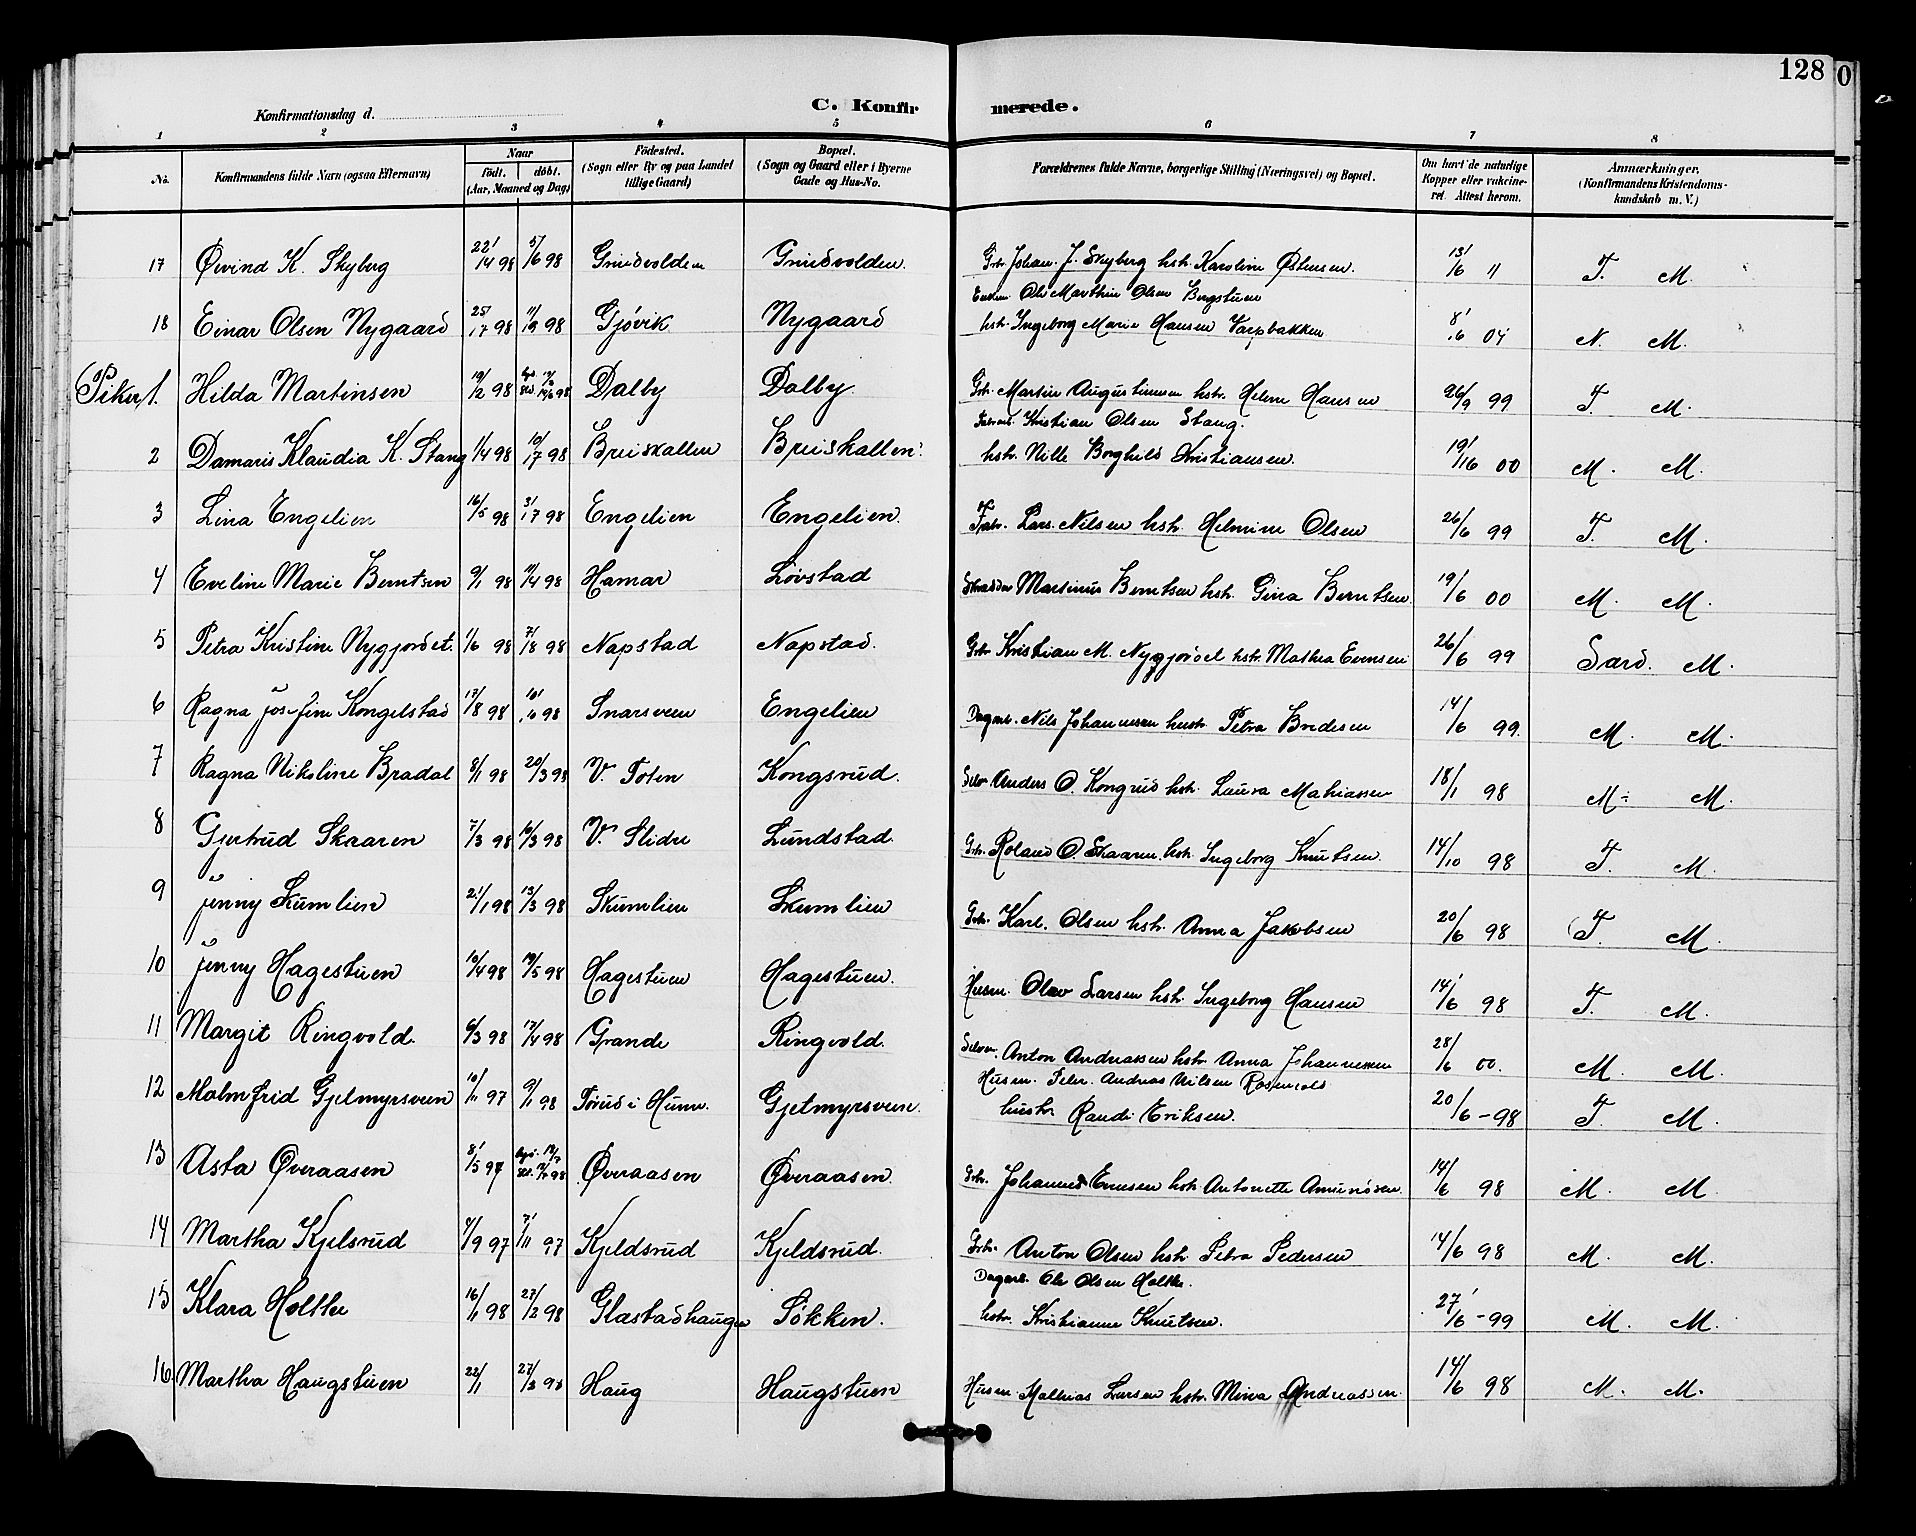 128
0
Konfirmationsdag d.
C. Konfirmerede.
1 2 3 4 5 6 7 8
No. Konfirmandens fulde Navn (ogsaa Efternavn) Naar født. døbt. (Aar, Maaned og Dag) Fødested. (Sogn eller By og paa Landet tillige Gaard) Bopæl. (Sogn og Gaard eller i Byerne Gade og Hus-No. Forældrenes fulde Navne, borgerlige Stilling (Næringsvei) og Bopæl. Om havt de naturlige Kopper eller vakcineret. Attest herom. Anmærkninger. (Konfirmandens Kristendomskundskab m. V.)
17 Øvind K. Skyberg 22/4 98 5/6 98 Gnudvolden Gnudvolden. Grbr. Johan. J. Skyberg hstr. Karoline Østensen. 13/6 11 T. M.
Ole Marthin Olsen Bergstuen
18 Einar Olsen Nygaard 25/7 98 11/9 98 Gjøvik Nygaard hstr. Ingeborg Marie Hansen Varpbakken 8/6 04 N. M.
Piker 1. Hilda Martinsen 19/2 98 98 Dalby Dalby. Gbr. Martin Augustinsen hstr. Helene Hansen 26/9 99 T. M.
Kristian Olsen Stang.
2 Damaris Klaudia K. Stang 1/4 98 10/7 98 Breiskallen Breiskallen. hstr. Nille Borghild Kristiansen. 19/16 00 M. M.
3 Lina Engelien 16/5 98 3/7 98 Engelien Engelien. Lars Nilsen hstr. Helmine Olsen 26/6 99 T. M.
4 Eveline Marie Berntsen 9/1 98 11/4 98 Hamar Løvstad Skrædder Martinus Berntsen hstr. Gina Berntsen. 19/6 00 M. M.
5 Petra Kristine Nygjordet. 1/6 98 7/8 98 Napstad Napstad. Gbr Kristian M. Nygjordet hstr. Mathea Evensen 26/6 99 Særd. M.
6 Ragna Josefine Kongelstad 17/8 98 10/10 98 Snarsveen Engelien Dagarb. Nils Johannesen hustr. Petra Bredesen 14/6 99. M. M.
7 Ragna Nikoline Bradal 8/1 98 20/3 98 V. Toten Kongsrud. Selv. Anders O. Kongrud hstr. Laura Mathiassen 18/1 98 M- M.
8 Gjertrud Skaaren 7/3 98 16/3 98 V. Slidre Lundstad. Gbr. Roland O. Skaaren. hstr. Ingeborg Knutsen. 14/10 98 T. M.
9 Jenny Skumlien 21/1 98 13/3 98 Skumlien Skumlien Gbr. Karl. Olsen hstr. Anna Jakobsen 20/6 98 T. M.
10 Jenny Hagestuen 10/4 98 19/5 98 Hagestuen Hagestuen. Husm. Olav Larsen hstr. Ingeborg Hansen 14/6 98 T. M.
11 Margit Ringvold. 6/3 98 17/4 98 Grande Ringvold. Selver. Anton Andreassen hstr. Anna Johannessen 28/6 00. M. M.
Husm. Peder Andreas Nilsen Rosenvold
12 Malmfrid Gjetmyrsveen 10/11 97 9/1 98 Førud i Hunn. Gjetmyrsveen. hustr Randi Eriksen. 20/6 - 98 T. M.
13 Asta Øveraasen 8/5 97 98 Øveraasen Øveraasen. Gbr. Johannes Evensen hstr. Antonette Amundsen. 14/6 98 M. M.
14 Martha Kjelsrud 4/9 97 7/11 97 Kjeldsrud Kjeldsrud. Gbr. Anton Olsen hstr. Petra Pedersen 14/6 98 M. M.
Dagarb. Ole Olsen Holthe.
15 Klara Holthe 16/11 98 27/2 98 Glæstadhaugen Søkken. hstr. Kristianne Knutsen. 27/6 - 99 M. M.
16 Martha Haugstuen 22/11 27/3 98 Haug Haugstuen Husm. Mathias Larsen hstr. Mina Andreassen. 14/6 98 M. M.